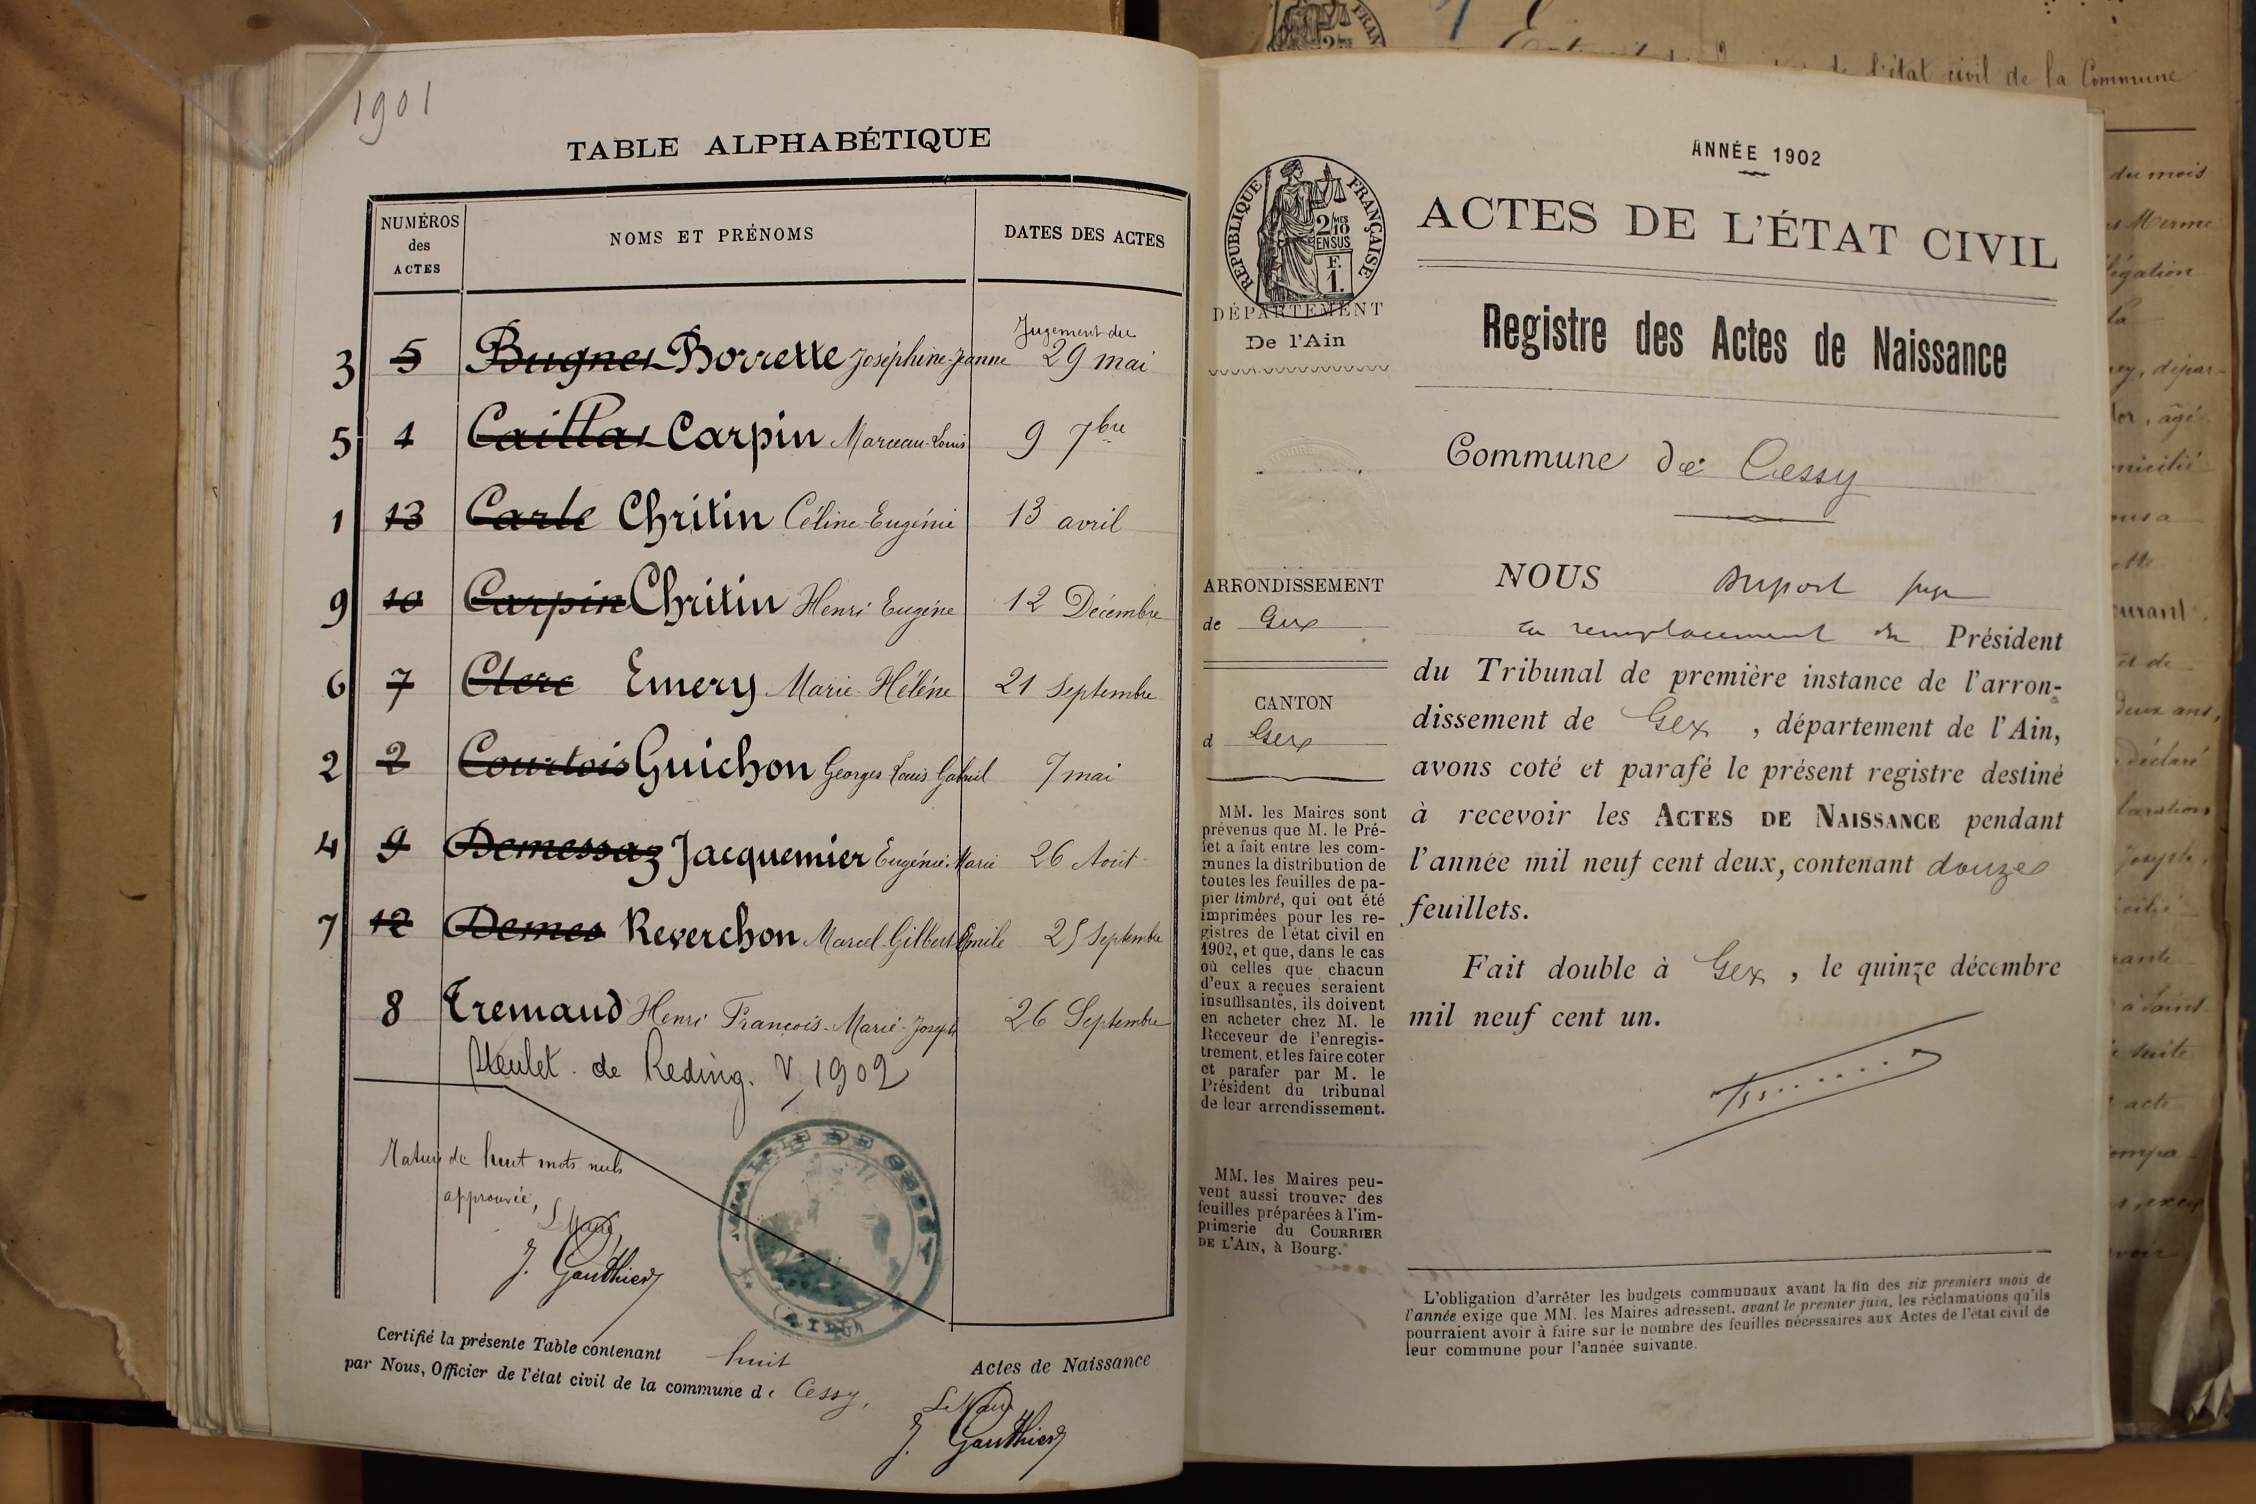 1901
TABLE ALPHABÉTIQUE
NUMÉROS des ACTES NOMS ET PRÉNOMS DATES DES ACTES
Jugement du
3 5 Bugner Borrette Joséphine-Jeanne 29 mai
5 1 Caillas Carpin Marceau-Louis 9 7bre
1 13 Carle Chritin Céline-Eugénie 13 avril
9 10 Carpin Chritin Henri Eugène 12 Décembre
6 7 Clerc Emery Marie-Hélène 21 Septembre
2 2 Courtois Guichon Georges Louis Gabriel 7 mai
4 9 Demessaz Jacquemier Eugénie-Marie 26 Août
7 12 Demes Reverchon Marcel-Gilbert-Emile 25 Septembre
8 Tremaud Henri François-Marie-Joseph 26 Septembre
de Reding. V, 1902
Rature de huit mots nuls
approuvée,
Le Maire,
J. Gauthier
MAIRIE DE CESSY
(AIN)
Certifié la présente Table contenant huit Actes de Naissance
par Nous, Officier de l'état civil de la commune de Cessy,
Le Maire
J. Gauthier
RÉPUBLIQUE FRANÇAISE
2/10 MES
EN SUS
F.
1.
DÉPARTEMENT
De l'Ain
ARRONDISSEMENT
de Gex
CANTON
d Gex
MM. les Maires sont
prévenus que M. le Pré-
fet a fait entre les com-
munes la distribution de
toutes les feuilles de pa-
pier timbré, qui ont été
imprimées pour les re-
gistres de l'état civil en
1902, et que, dans le cas
où celles que chacun
d'eux a reçues seraient
insuffisantes, ils doivent
en acheter chez M. le
Receveur de l'enregis-
trement, et les faire coter
et parafer par M. le
Président du tribunal
de leur arrondissement.
MM. les Maires peu-
vent aussi trouver des
feuilles préparées à l'im-
primerie du COURRIER
DE L'AIN, à Bourg.
ANNÉE 1902
ACTES DE L'ÉTAT CIVIL
Registre des Actes de Naissance
Commune de Cessy
NOUS Dupont juge
en remplacement du Président
du Tribunal de première instance de l'arron-
dissement de Gex, département de l'Ain,
avons coté et parafé le présent registre destiné
à recevoir les ACTES DE NAISSANCE pendant
l'année mil neuf cent deux, contenant douze
feuillets.
Fait double à Gex, le quinze décembre
mil neuf cent un.
L'obligation d'arrêter les budgets communaux avant la fin des six premiers mois de
l'année exige que MM. les Maires adressent, avant le premier juin, les réclamations qu'ils
pourraient avoir à faire sur le nombre des feuilles nécessaires aux Actes de l'état civil de
leur commune pour l'année suivante.
de l'état civil de la Commune
du mois